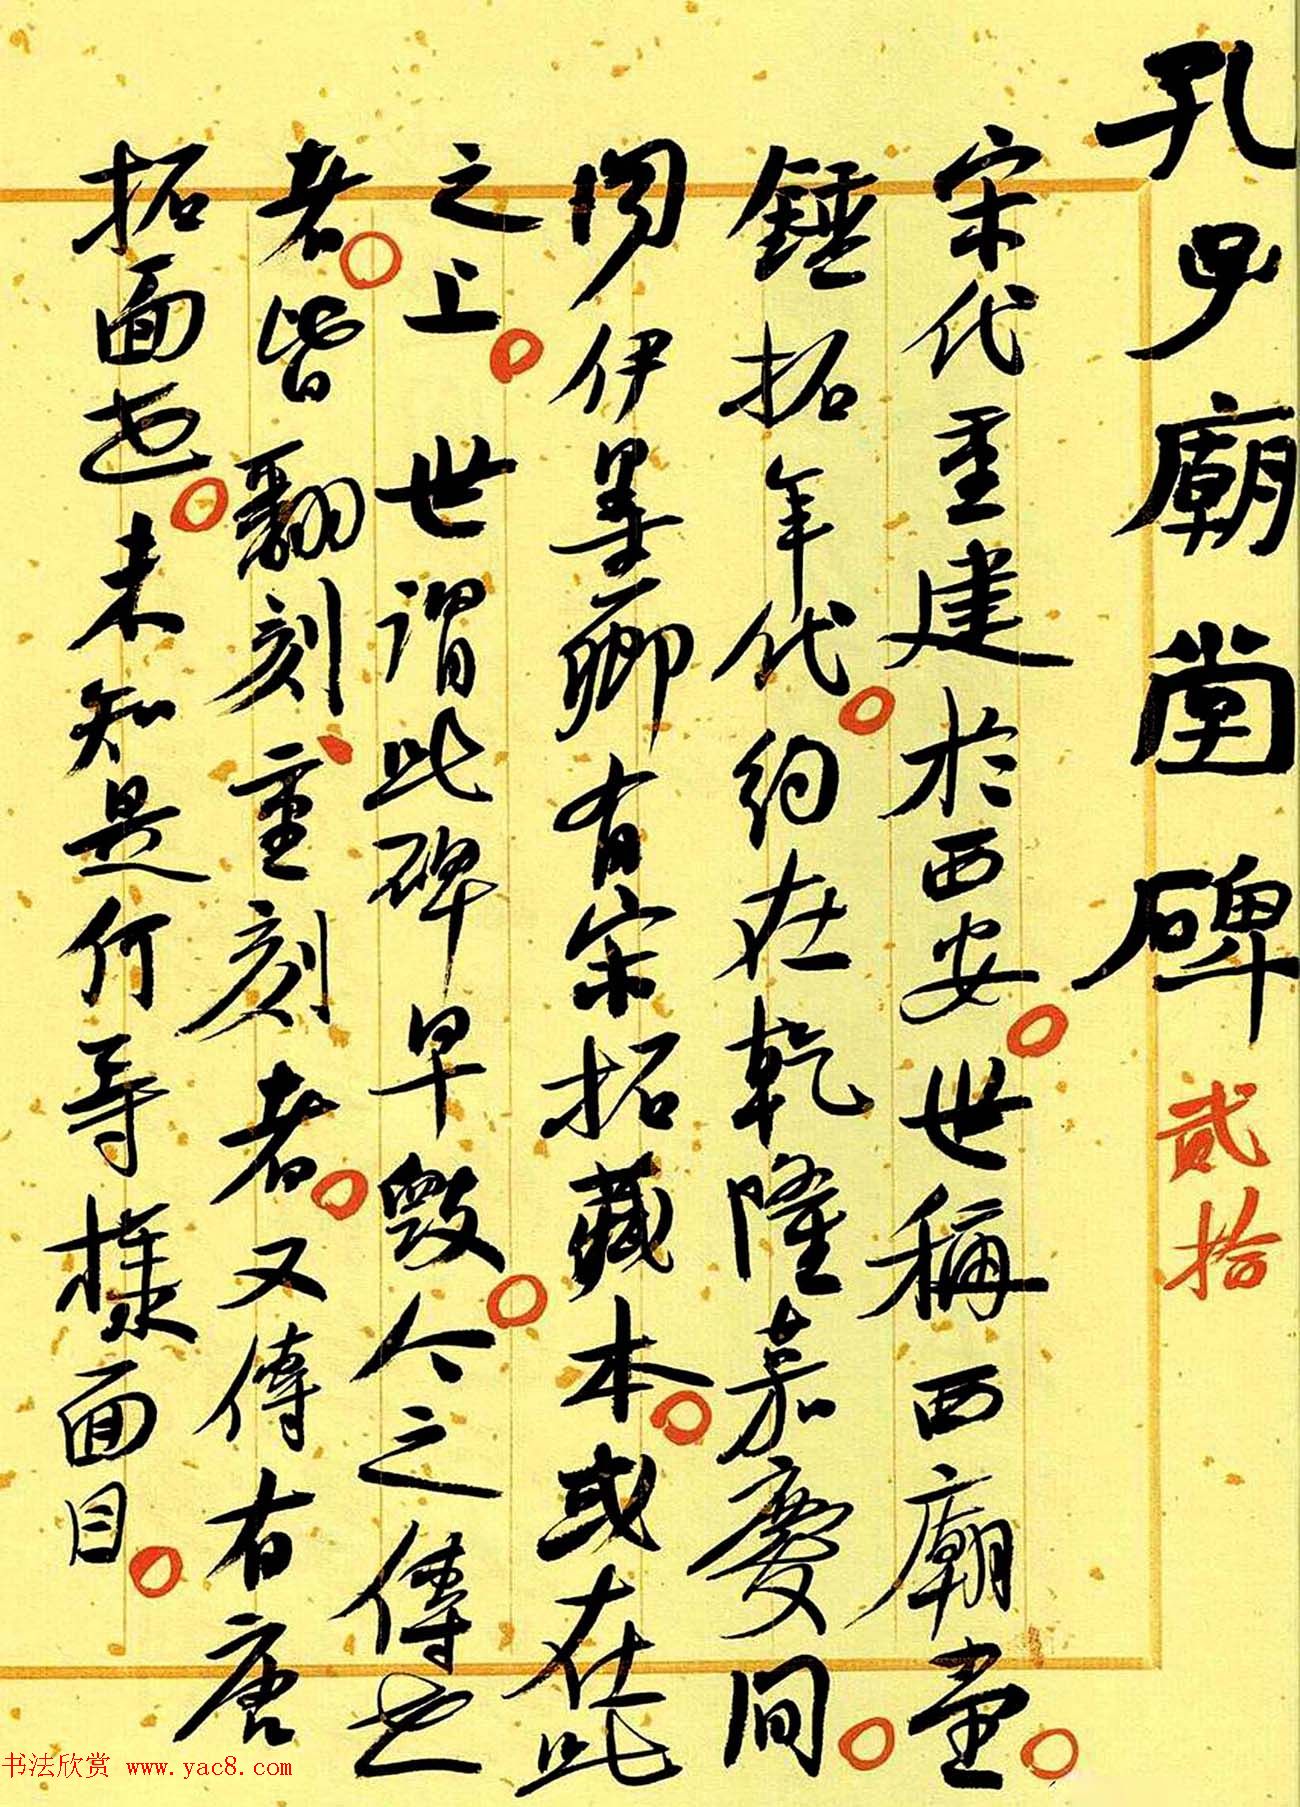 孔子廟堂碑 貳拾
宋代重建於西安。世稱西廟堂。
錘拓年代。約在乾隆嘉慶間。
因伊墨卿有宋拓藏本。或在此
之上。世謂此碑早毀。今之傳世
者。皆翻刻、重刻者。又傳有唐
拓面世。未知是何等樣面目。
书法欣赏 www.yac8.com